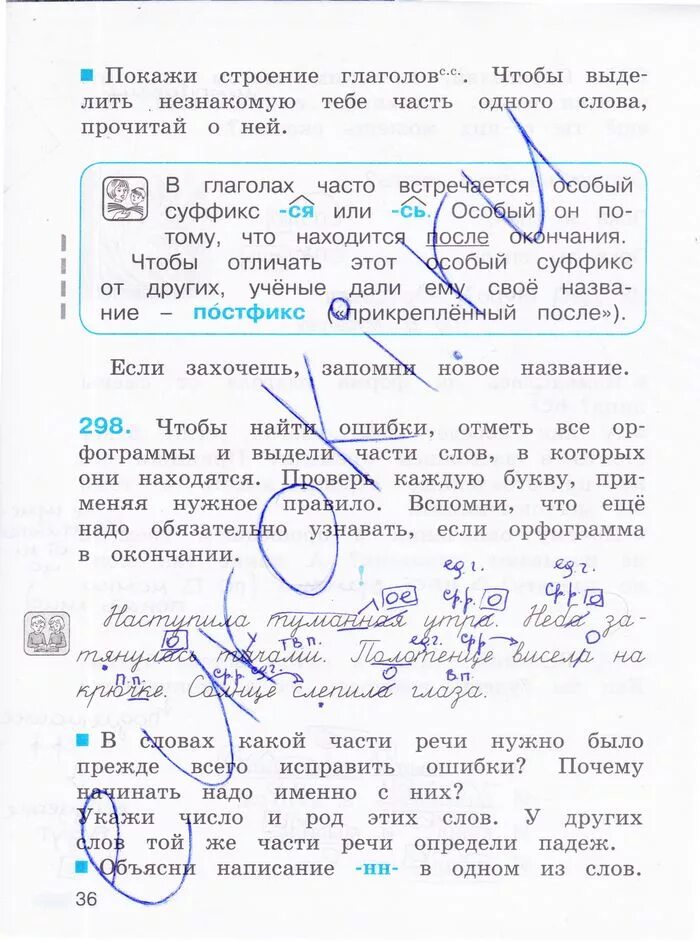 Покажи строение глаголовс.с. Чтобы выде-
лить незнакомую тебе часть одного слова,
прочитай о ней.
В глаголах часто встречается особый
суффикс -ся или -сь. Особый он по-
тому, что находится после окончания.
Чтобы отличать этот особый суффикс
от других, учёные дали ему своё назва-
ние – постфикс («прикреплённый после»).
Если захочешь, запомни новое название.
298. Чтобы найти ошибки, отметь все ор-
фограммы и выдели части слов, в которых
они находятся. Проверь каждую букву, при-
меняя нужное правило. Вспомни, что ещё
надо обязательно узнавать, если орфограмма
в окончании.
ед.г. ед.г.
ое ср.р. о ср.р. о
Наступила туманная утра. Неба за-
о Т.п. ед.г. ср.р о
тянулась тачами. Полотенце висела на
П.п. ср.р. ед.г. о В.п.
крючке. Солнце слепила глаза.
В словах какой части речи нужно было
прежде всего исправить ошибки? Почему
начинать надо именно с них?
Укажи число и род этих слов. У других
слов той же части речи определи падеж.
Объясни написание -нн- в одном из слов.
36